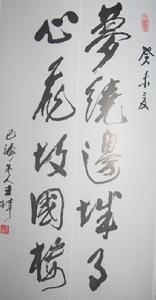 癸未夏
夢繞邊城月
心飛故國樓
巴渝